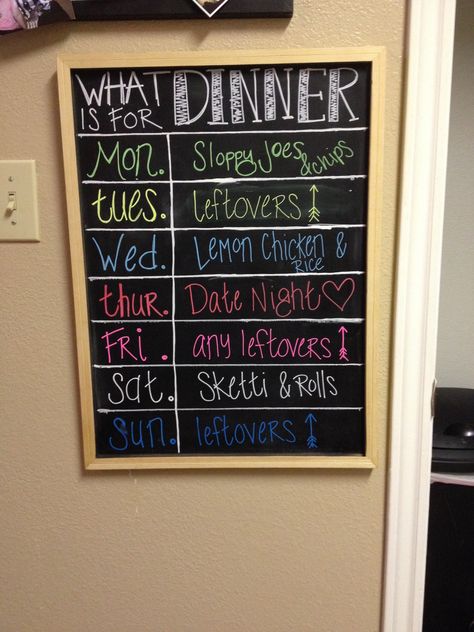 WHAT IS FOR DINNER
Mon. Sloppy Joes & chips
tues. leftovers
Wed. Lemon Chicken & RICE
thur. Date Night
FRI. any leftovers
Sat. Sketti & Rolls
Sun. leftovers